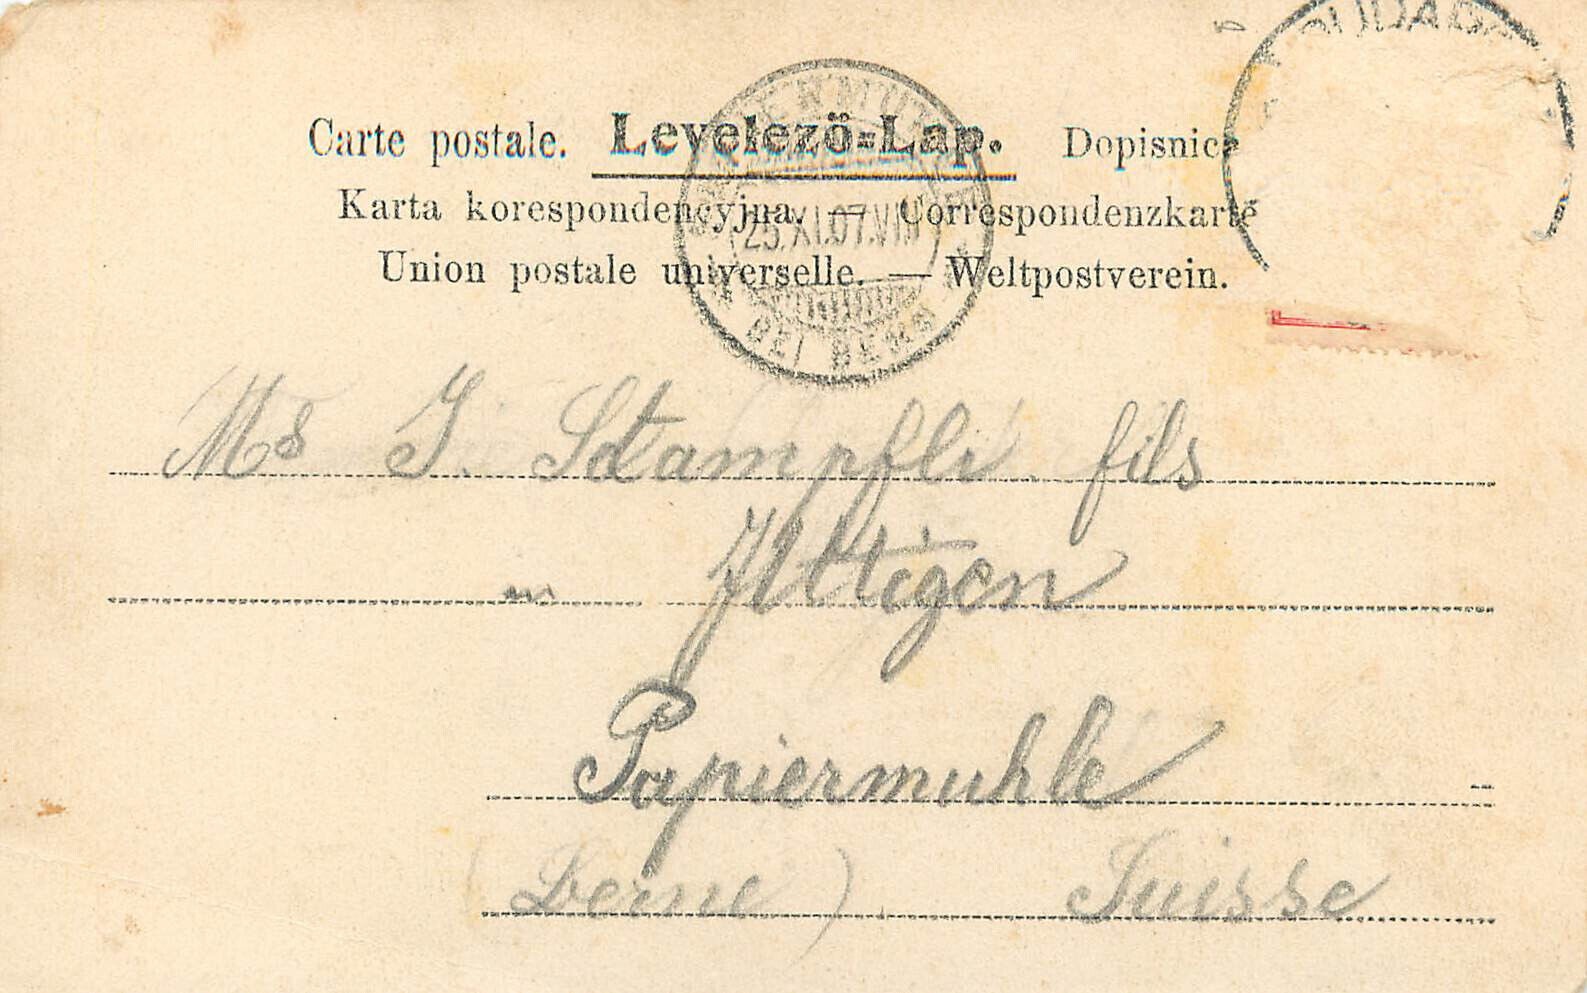 Carte postale. Levelező-Lap. Dopisnice
Karta korespondencyjna. — Correspondenzkarte
Union postale universelle. — Weltpostverein.
25.XI.07.VIII
BEI BERN
Ms J. Stampfli fils
en Ittigen
Papiermuhle
(Berne) Suisse